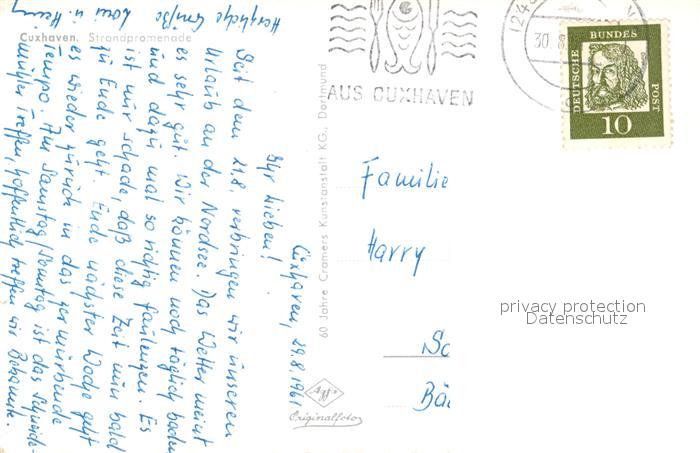 Cuxhaven. Strandpromenade
Cuxhaven, 29.8.1961
Ihr Lieben!
Seit dem 21.8. verbringen wir unseren
Urlaub an der Nordsee. Das Wetter meint
es sehr gut. Wir können noch täglich baden
und dazu mal so richtig faulenzen. Es
ist nur schade, daß diese Zeit nun bald
zu Ende geht. Ende nächster Woche geht
es wieder zurück in das zermürbende
Tempo. Am Samstag/Sonntag ist das
Treffen, hoffentlich treffen wir Bekannte.
Herzliche Grüße
60 Jahre Cramers Kunstanstalt KG., Dortmund
Agfa
Originalfoto
AUS CUXHAVEN
30.8
DEUTSCHE BUNDES POST
10
Familie
Harry
privacy protection
Datenschutz